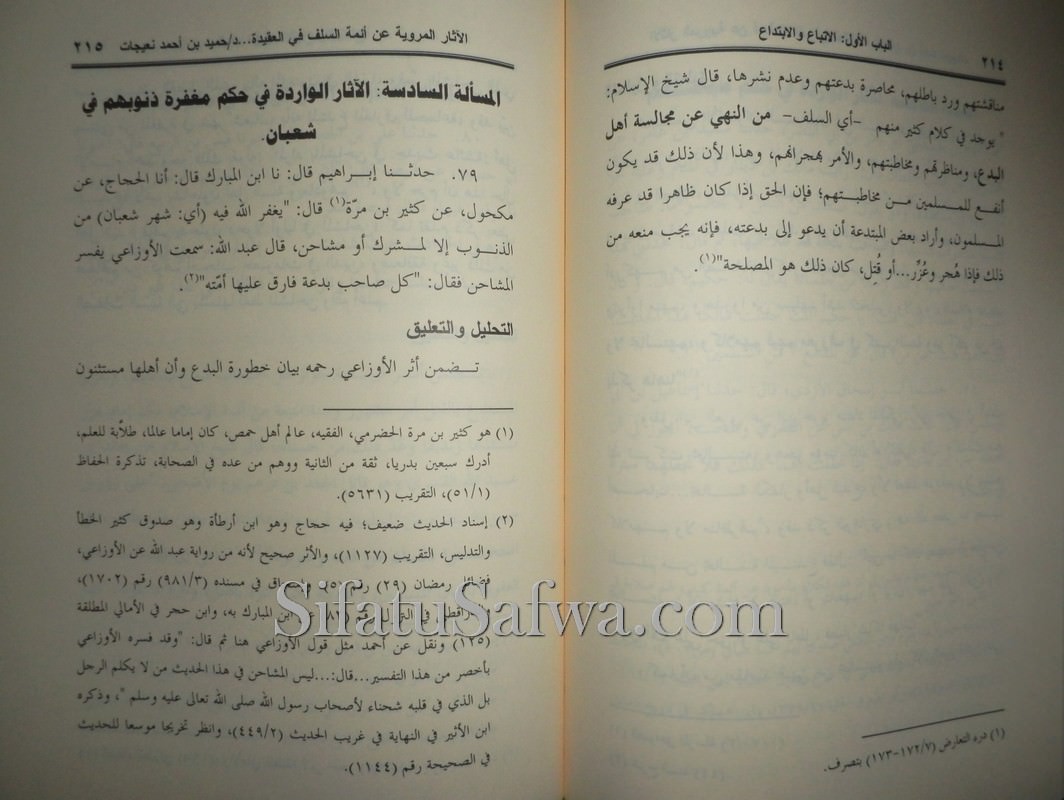 الباب الأول: الاتباع والابتداع
٢١٤
مناقشتهم ورد باطلهم، محاصرة بدعتهم وعدم نشرها، قال شيخ الإسلام:
" يوجد في كلام كثير منهم –أي السلف– من النهي عن مجالسة أهل
البدع، ومناظرتهم ومخاطبتهم، والأمر بهجرانهم، وهذا لأن ذلك قد يكون
أنفع للمسلمين من مخاطبتهم؛ فإن الحق إذا كان ظاهرا قد عرفه
المسلمون، وأراد بعض المبتدعة أن يدعو إلى بدعته، فإنه يجب منعه من
ذلك فإذا هُجر وعُزِّر...أو قُتِل، كان ذلك هو المصلحة"(١).
(١) درء التعارض (١٧٢/٧-١٧٣) بتصرف.
الآثار المروية عن أئمة السلف في العقيدة...د/حميد بن أحمد نعيجات
٢١٥
المسألة السادسة: الآثار الواردة في حكم مغفرة ذنوبهم في
شعبان.
٧٩. حدثنا إبراهيم قال: نا ابن المبارك قال: أنا الحجاج، عن
مكحول، عن كثير بن مرّة(١) قال: "يغفر الله فيه (أي: شهر شعبان) من
الذنوب إلا لمشرك أو مشاحن، قال عبد الله: سمعت الأوزاعي يفسر
المشاحن فقال: "كل صاحب بدعة فارق عليها أمّته"(٢).
التحليل والتعليق
تضمن أثر الأوزاعي رحمه بيان خطورة البدع وأن أهلها مستثنون
(١) هو كثير بن مرة الحضرمي، الفقيه، عالم أهل حمص، كان إماما عالما، طلاّبة للعلم،
أدرك سبعين بدريا، ثقة من الثانية ووهم من عده في الصحابة، تذكرة الحفاظ
(٥١/١)، التقريب (٥٦٣١).
(٢) إسناد الحديث ضعيف؛ فيه حجاج وهو ابن أرطأة وهو صدوق كثير الخطأ
والتدليس، التقريب (١١٢٧)، والأثر صحيح لأنه من رواية عبد الله عن الأوزاعي،
فضائل رمضان (٢٩) رقم في مسنده (٩٨١/٣) رقم (١٧٠٢)،
في رقم ابن المبارك به، وابن حجر في الأمالي المطلقة
(١٢٥) ونقل عن أحمد مثل قول الأوزاعي هنا ثم قال: "وقد فسره الأوزاعي
بأخصر من هذا التفسير...قال:...ليس المشاحن في هذا الحديث من لا يكلم الرجل
بل الذي في قلبه شحناء لأصحاب رسول الله صلى الله تعالى عليه وسلم "، وذكره
ابن الأثير في النهاية في غريب الحديث (٤٤٩/٢)، وانظر تخريجا موسعا للحديث
في الصحيحة رقم (١١٤٤).
SifatuSafwa.com